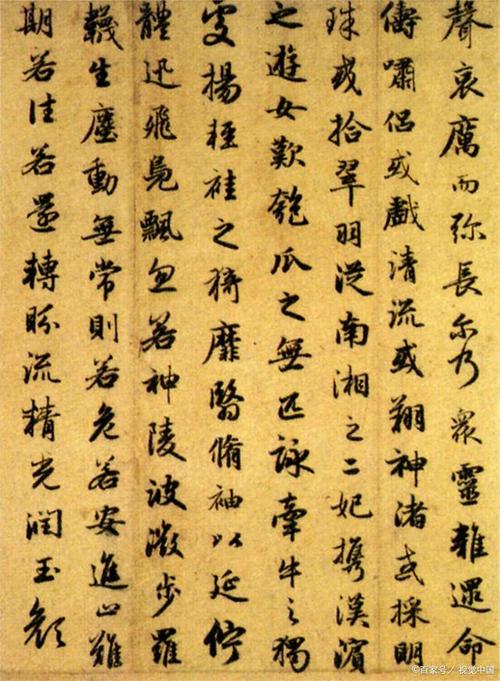 聲哀厲而弥長尔乃衆靈雜遝命
儔嘯侶或戲清流或翔神渚或採明
珠或拾翠羽從南湘之二妃攜漢濱
之遊女歎匏瓜之無匹詠牽牛之獨
處揚輕袿之猗靡翳脩袖以延佇
體迅飛鳧飄忽若神陵波微步羅
韈生塵動無常則若危若安進止難
期若往若還轉眄流精光潤玉顏
©百家号／视觉中国